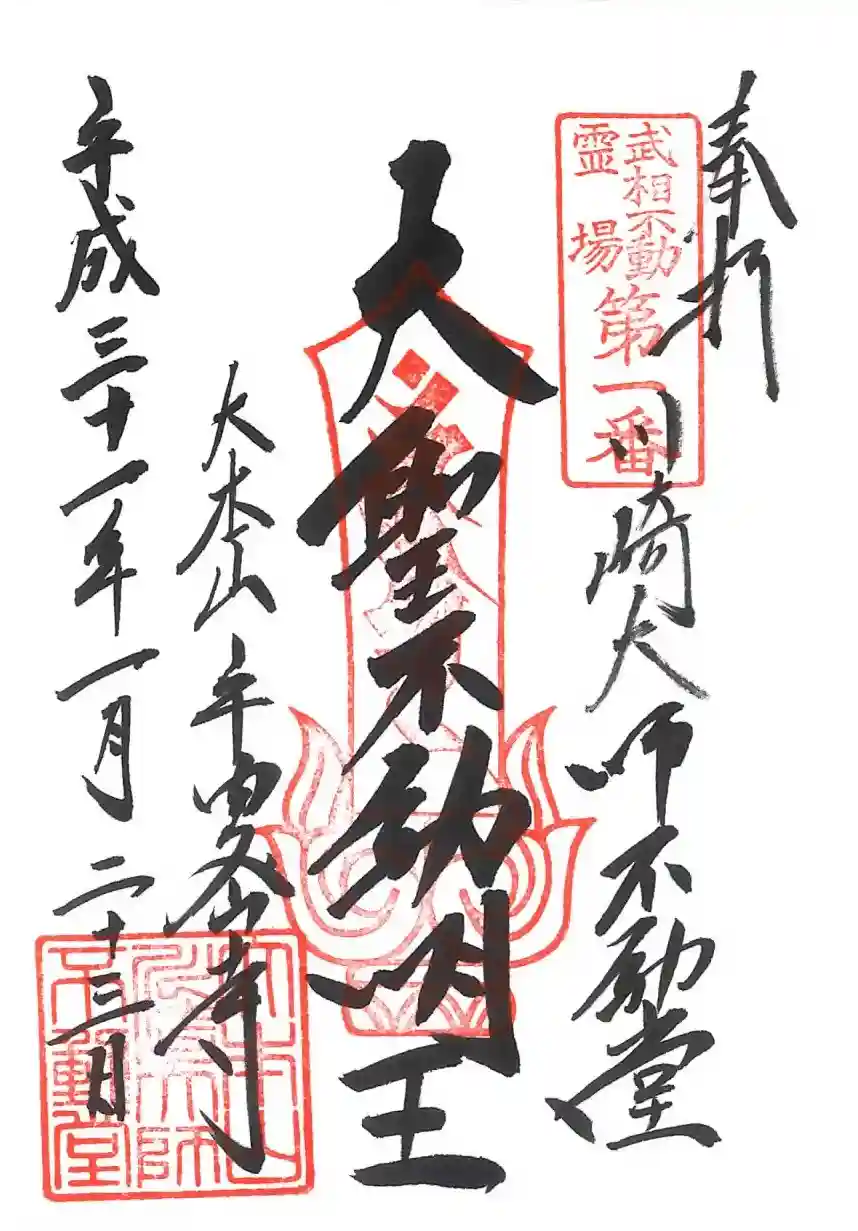 奉拝
武相不動
霊場
第一番
川崎大師不動堂
大聖不動明王
大本山 平間寺
平成三十一年一月二十三日
大本山
川崎大師
不動堂